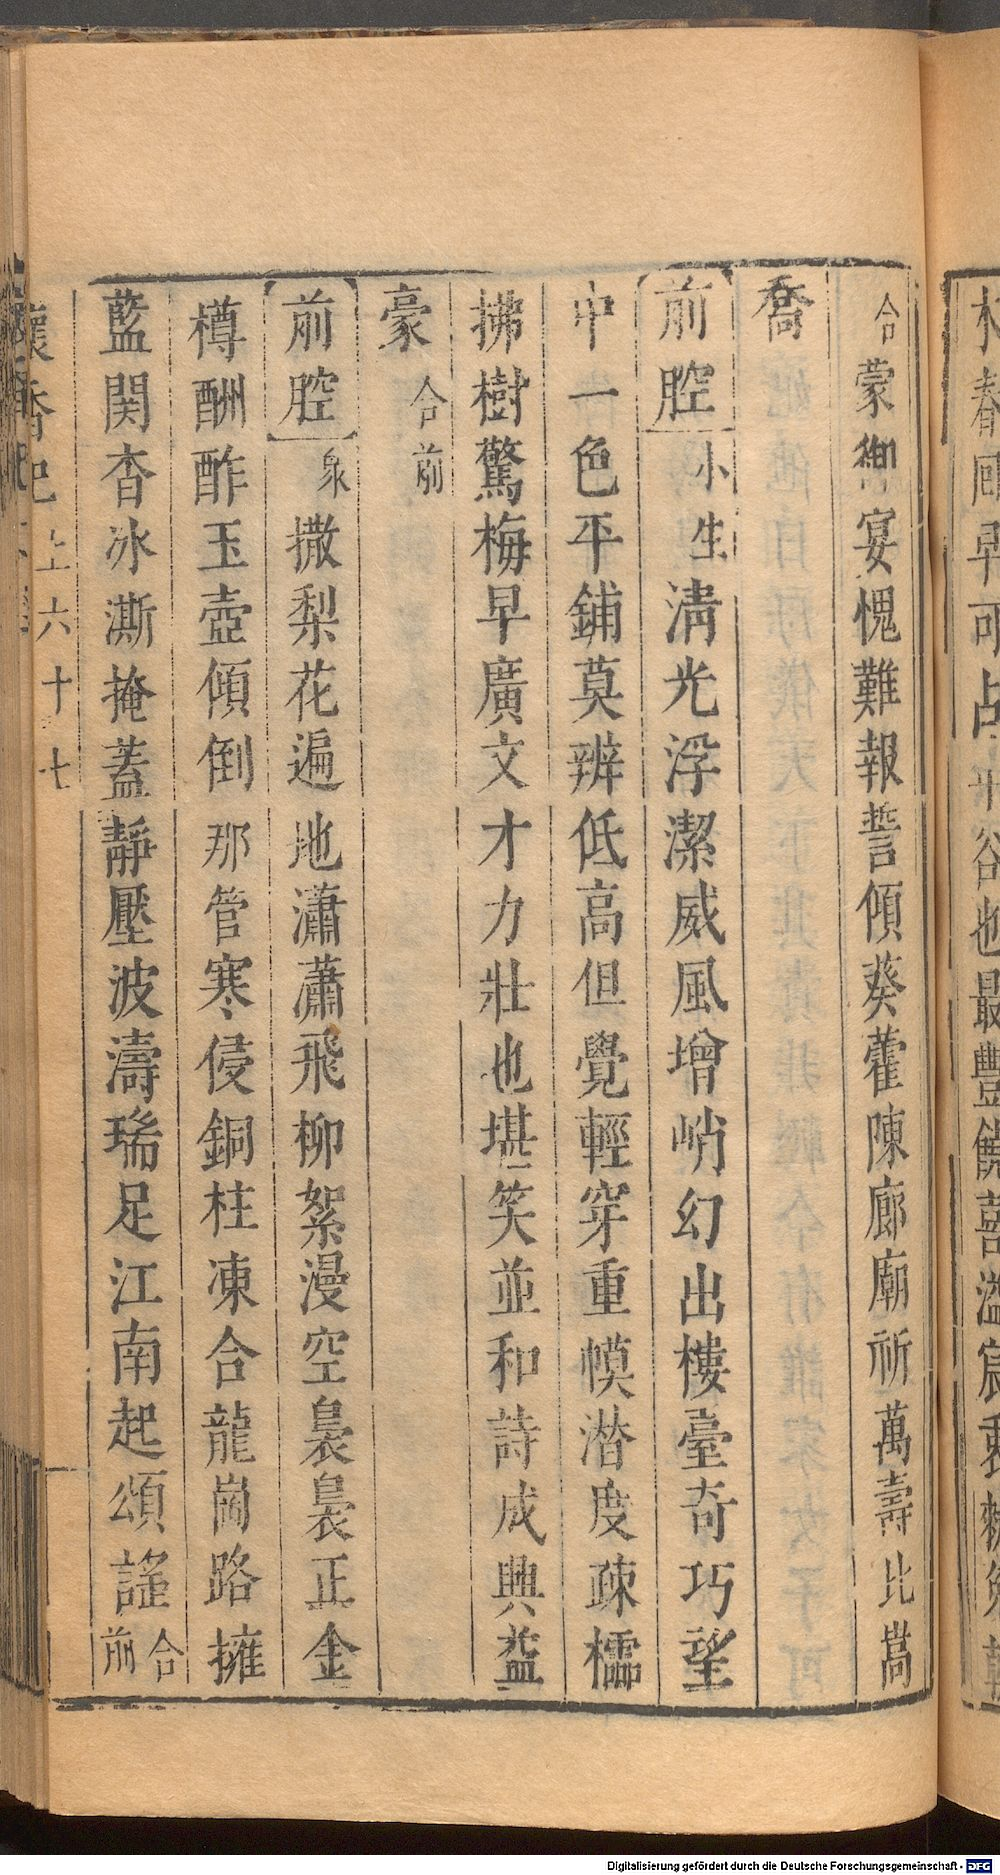 合蒙御宴愧難報誓傾葵藿陳廊廟祈萬壽比嵩
喬
前腔小生清光浮潔威風增峭幻出樓臺奇巧望
中一色平鋪莫辨低高但覺輕穿重幙潜度疎櫺
拂樹驚梅早廣文才力壯也堪笑並和詩成興益
豪合前
前腔衆撒梨花遍地瀟瀟飛柳絮漫空裊裊正金
樽酬酢玉壺傾倒那管寒侵銅柱凍合龍崗路擁
藍関杳冰澌掩蓋靜壓波濤瑞足江南起頌謠合前
懷香記上六十七
Digitalisierung gefördert durch die Deutsche Forschungsgemeinschaft - DFG